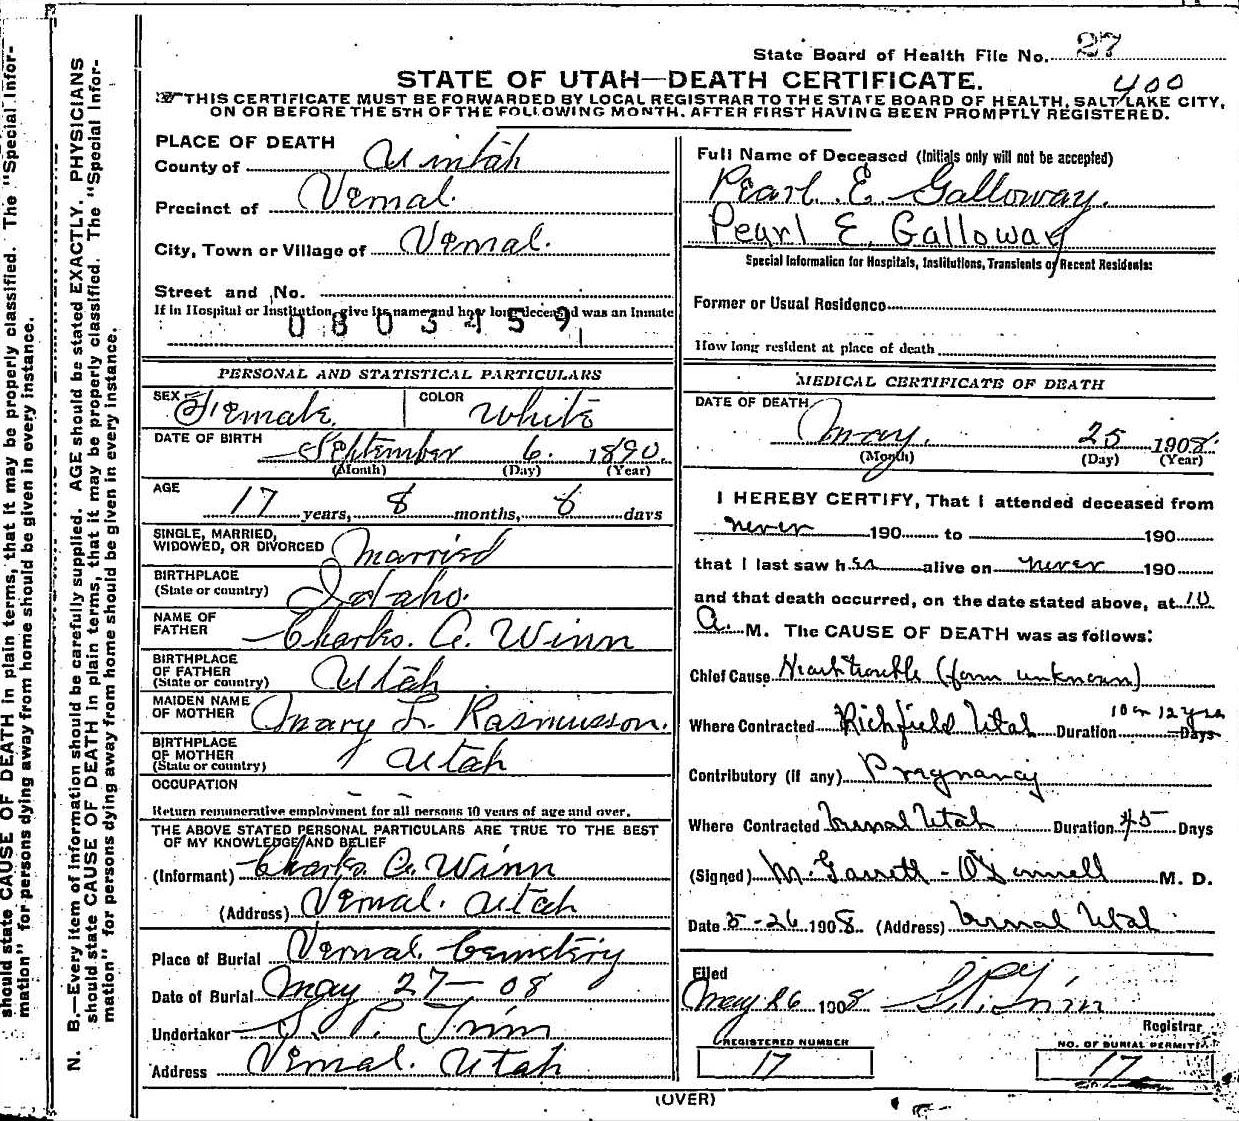 State Board of Health File No. 27
STATE OF UTAH—DEATH CERTIFICATE. 400
THIS CERTIFICATE MUST BE FORWARDED BY LOCAL REGISTRAR TO THE STATE BOARD OF HEALTH, SALT LAKE CITY,
ON OR BEFORE THE 5TH OF THE FOLLOWING MONTH. AFTER FIRST HAVING BEEN PROMPTLY REGISTERED.
PLACE OF DEATH
County of Uintah
Precinct of Vernal.
City, Town or Village of Vernal.
Street and No.
If in Hospital or Institution, give its name and how long deceased was an Inmate
0803459
PERSONAL AND STATISTICAL PARTICULARS
SEX Female. COLOR White
DATE OF BIRTH September 6. 1890.
(Month) (Day) (Year)
AGE
17 years, 8 months, 6 days
SINGLE, MARRIED,
WIDOWED, OR DIVORCED Married
BIRTHPLACE
(State or country) Idaho.
NAME OF
FATHER Charles. A. Winn
BIRTHPLACE
OF FATHER
(State or country) Utah
MAIDEN NAME
OF MOTHER Mary L. Rasmusson.
BIRTHPLACE
OF MOTHER
(State or country) Utah
OCCUPATION
Return remunerative employment for all persons 10 years of age and over.
THE ABOVE STATED PERSONAL PARTICULARS ARE TRUE TO THE BEST
OF MY KNOWLEDGE AND BELIEF
(Informant) Charles A. Winn
(Address) Vernal. Utah
Place of Burial Vernal. Cemetery
Date of Burial May 27—08
Undertaker S. P. Trim
Address Vernal. Utah
Full Name of Deceased (Initials only will not be accepted)
Pearl. E. Galloway.
Pearl E. Galloway
Special Information for Hospitals, Institutions, Transients or Recent Residents:
Former or Usual Residence
How long resident at place of death
MEDICAL CERTIFICATE OF DEATH
DATE OF DEATH
May. 25 1908.
(Month) (Day) (Year)
I HEREBY CERTIFY, That I attended deceased from
never 190 to 190
that I last saw her alive on never 190
and that death occurred, on the date stated above, at 10
A. M. The CAUSE OF DEATH was as follows:
Chief Cause Heart trouble (form unknown)
Where Contracted Richfield Utah Duration 10 or 12 yrs Days
Contributory (if any) Pregnancy
Where Contracted Vernal Utah Duration 45 Days
(Signed) M. Garrett-O'Donnell M. D.
Date 5-26 1908. (Address) Vernal Utah
Filed
May 26 1908 S. P. Trim
Registrar
REGISTERED NUMBER
17
NO. OF BURIAL PERMIT
17
(OVER)
N. B.—Every item of information should be carefully supplied. AGE should be stated EXACTLY. PHYSICIANS
should state CAUSE OF DEATH in plain terms, that it may be properly classified. The "Special Infor-
mation" for persons dying away from home should be given in every instance.
should state CAUSE OF DEATH in plain terms, that it may be properly classified. The "Special Infor-
mation" for persons dying away from home should be given in every instance.